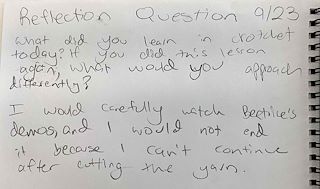 Reflection Question 9/23
what did you learn in crotchet
today? If you did this lesson
again, what would you approach
differently?
I would carefully watch Beatrice's
demos, and I would not end
it because I can't continue
after cutting the yarn.